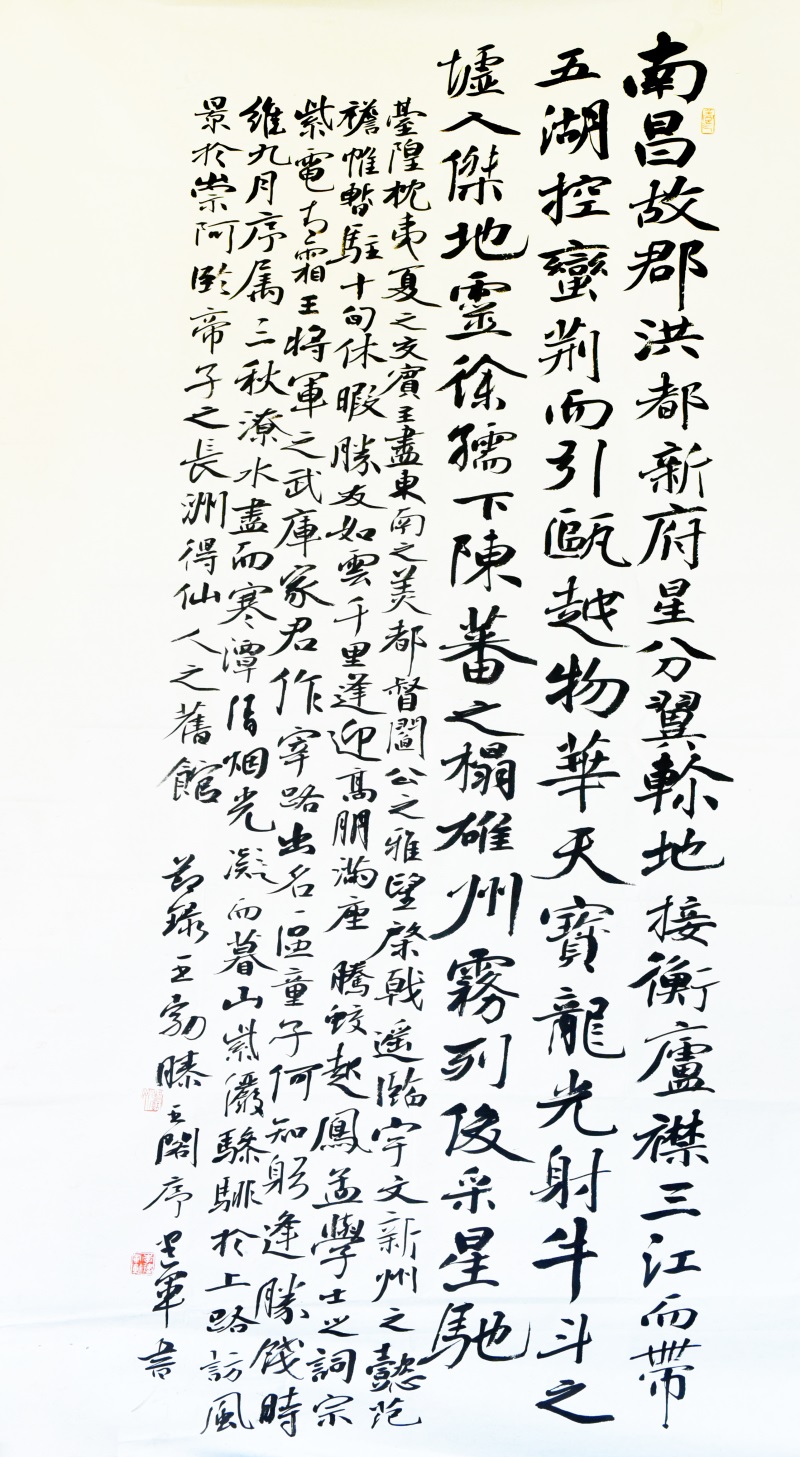 南昌故郡洪都新府星分翼軫地接衡廬襟三江而帶
五湖控蠻荆而引甌越物華天寶龍光射牛斗之
墟人傑地靈徐孺下陳蕃之榻雄州霧列俊采星馳
臺隍枕夷夏之交賓主盡東南之美都督閻公之雅望棨戟遥臨宇文新州之懿范
襜帷暫駐十旬休暇勝友如雲千里逢迎高朋滿座騰蛟起鳳孟學士之詞宗
紫電青霜王將軍之武庫家君作宰路出名區童子何知躬逢勝餞時
維九月序属三秋潦水盡而寒潭清烟光凝而暮山紫儼驂騑於上路訪風
景於崇阿臨帝子之長洲得仙人之舊館
節録王勃滕王閣序 軍書